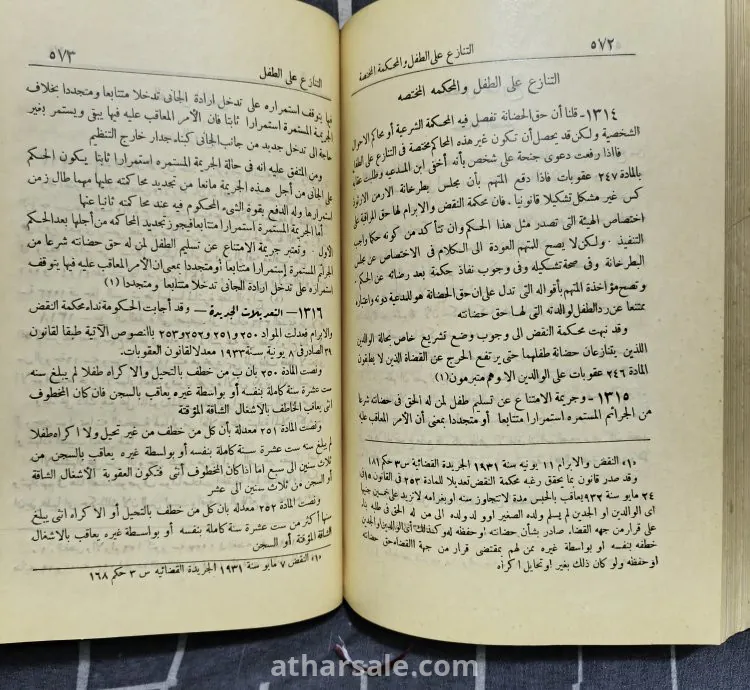 ٥٧٢ التنازع على الطفل والمحكمة المختصة
التنازع على الطفل والمحكمه المختصه
١٣١٤ - قلنا أن حق الحضانة تفصل فيه المحكمة الشرعية أو محاكم الاحوال
الشخصية ولكن قد يحصل أن تكون غير هذه المحاكم مختصة فى التنازع على الطفل
فاذا رفعت دعوى جنحة على شخص بأنه أخفى ابن المدعيه وطلبت عقابه
بالمادة ٢٤٧ عقوبات فاذا دفع المتهم بأن مجلس بطرخانة الارمن الارثوذ
كس غير مشكل تشكيلا قانونيا . فان محكمة النقض والابرام لها حق المراقبة على
اختصاص الهيئة التى تصدر مثل هذا الحكم وان تتأكد من كونه حكما واجب
التنفيذ . ولكن لا يصح للمتهم العودة الى الكلام فى الاختصاص عن مجلس
البطرخانة وفى صحة تشكيله وفى وجوب نفاذ حكمة بعد رضائه عن الحكم
وتصح مؤاخذة المتهم بأقواله التى تدل على ان حق الحضانة هو للمدعية دونه واعتباره
ممتنعا عن رد الطفل لوالدته التى لها حق حضانته
وقد نبهت محكمة النقض الى وجوب وضع تشريع خاص بحالة الوالدين
اللذين يتنازعان حضانة طفلهما حتى يرتفع الحرج عن القضاة الذين لا يعاقبون
المادة ٢٤٦ عقوبات على الوالدين الا وهم متبرمون (١)
١٣١٥ - وجريمة الامتناع عن تسليم طفل لمن له الحق فى حضانته شرعا
من الجرائم المستمره استمرارا متتابعا أو متجددا بمعنى أن الامر المعاقب عليه
«١» النقض والابرام ١١ يونيه سنة ١٩٣١ الجريدة القضائية س ٣ حكم ١٨١
وقد صدر قانون بما يحقق رغبة محكمة النقض تعديلا للماده ٢٥٣ فى القانون ١٥ فى
٢٤ مايو سنة ٩٣٢ يعاقب بالحبس مدة لا تتجاوز سنه او بغرامه لا تزيد على خمسين جنيها
اى الوالدين او الجدين لم يسلم ولده الصغير او ولد ولده الى من له الحق فى طلبه بناء
على قرار من جهه القضاء صادر بشأن حضانته او حفظه له وكذلك اى الوالدين او الجدين
خطفه بنفسه او بواسطة غيره ممن لهم بمقتضى قرار من جهة القضاء حق حضانته
او حفظه ولو كان ذلك بغير او تحايل اكراه
التنازع على الطفل ٥٧٣
فيها يتوقف استمراره على تدخل ارادة الجانى تدخلا متتابعا ومتجددا بخلاف
الجريمة المستمرة استمرارا ثابتا فان الأمر المعاقب عليه فيها يبقى ويستمر بغير
حاجة الى تدخل جديد من جانب الجانى كبناء جدار خارج التنظيم
ومن المتفق عليه انه فى حالة الجريمة المستمره استمرارا ثابتا يكون الحكم
على الجانى من أجل هذه الجريمة مانعا من تجديد محاكمته عليها مهما طال زمن
استمرارها وله الدفع بقوة الشىء المحكوم فيه عند محاكمته ثانيا عنها
أما الجريمة المستمرة استمرارا متتابعا فيجوز تجديد المحاكمه من أجلها بعد الحكم
الأول . وتعتبر جريمة الامتناع عن تسليم الطفل لمن له حق حضانته شرعا من
الجرائم المستمرة إستمرارا متتابعا أو متجددا بمعنى ان الأمر المعاقب عليه فيها يتوقف
استمراره على تدخل ارادة الجانى تدخلا متتابعا ومتجددا (١)
١٣١٦ - التعديلات الجديدة - وقد أجابت الحكومة نداء محكمة النقض
والابرام فعدلت المواد ٢٥٠ و ٢٥١ و ٢٥٢ و ٢٥٣ بالنصوص الآتية طبقا لقانون
٢٨ الصادر فى ٨ يونية سنة ١٩٣٣ معدلا لقانون العقوبات.
ونصت المادة ٢٥٠ بان ب من خطف بالتحيل والا كراه طفلا لم يبلغ سنه
ست عشرة سنة كاملة بنفسه أو بواسطة غيره يعاقب بالسجن فان كان المخطوف
انثى يعاقب الخاطف بالاشغال الشاقة المؤقتة
ونصت المادة ٢٥١ معدلة بأن كل من خطف من غير تحيل ولا اكراه طفلا
لم يبلغ سنه ست عشرة سنة كاملة بنفسه أو بواسطة غيره يعاقب بالسجن من
ثلاث سنين الى سبع اما اذا كان المخطوف أنثى فتكون العقوبة الأشغال الشاقة
أو السجن من ثلاث سنين الى عشر
ونصت المادة ٢٥٢ معدله بأن كل من خطف بالتحيل أو الاكراه انثى يبلغ
سنها أكثر من ست عشرة سنة كاملة بنفسه أو بواسطة غيره يعاقب بالاشغال
الشاقة المؤقتة أو السجن
«١» النقض ٧ مايو سنة ١٩٣١ الجريدة القضائيه س ٣ حكم ١٦٨
atharsale.com